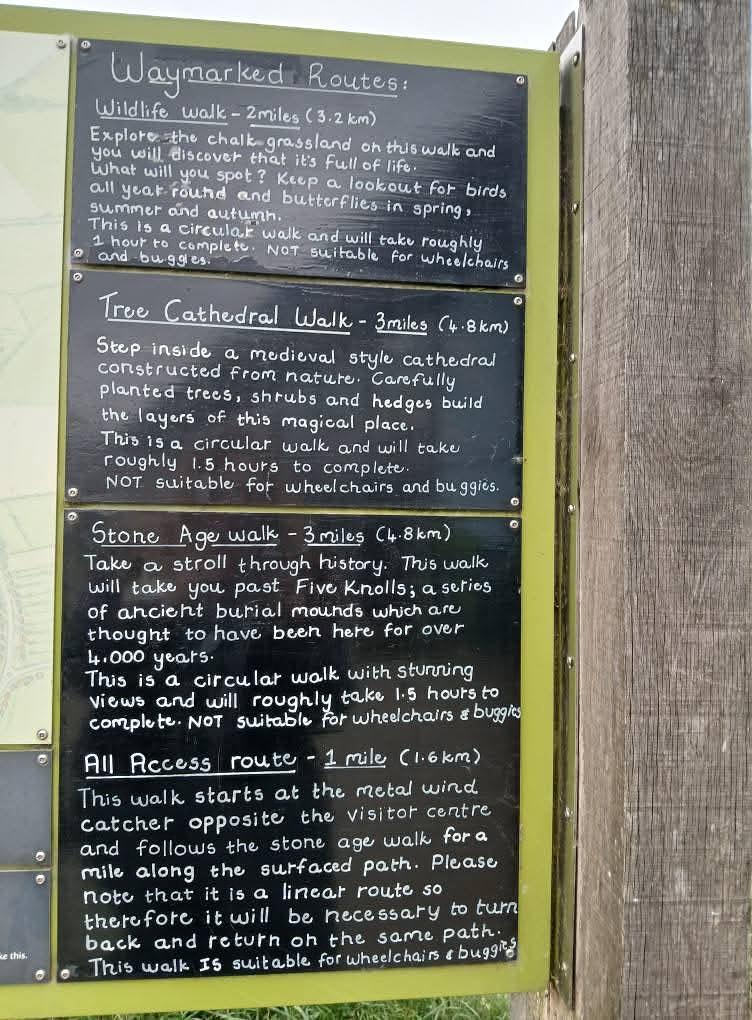 Waymarked Routes:
Wildlife walk - 2miles (3.2km)
Explore the chalk grassland on this walk and
you will discover that it's full of life.
What will you spot? Keep a lookout for birds
all year round and butterflies in spring,
summer and autumn.
This is a circular walk and will take roughly
1 hour to complete. NOT suitable for wheelchairs
and buggies.
Tree Cathedral Walk - 3miles (4.8km)
Step inside a medieval style cathedral
constructed from nature. Carefully
planted trees, shrubs and hedges build
the layers of this magical place.
This is a circular walk and will take
roughly 1.5 hours to complete.
NOT suitable for wheelchairs and buggies.
Stone Age walk - 3miles (4.8km)
Take a stroll through history. This walk
will take you past Five Knolls; a series
of ancient burial mounds which are
thought to have been here for over
4.000 years.
This is a circular walk with stunning
views and will roughly take 1.5 hours to
complete. NOT suitable for wheelchairs & buggies
All Access route - 1 mile (1.6km)
This walk starts at the metal wind
catcher opposite the visitor centre
and follows the stone age walk for a
mile along the surfaced path. Please
note that it is a linear route so
therefore it will be necessary to turn
back and return on the same path.
This walk IS suitable for wheelchairs & buggies
ke this.